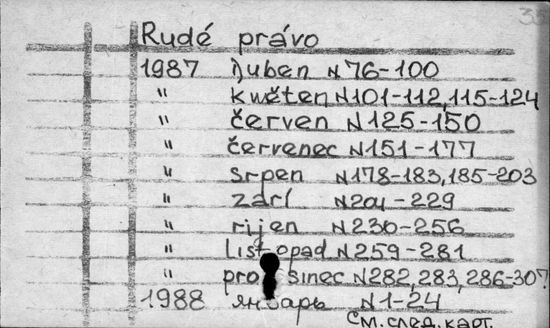 35
Rudé právo
1987 Duben N76-100
" květen N101-112,115-124
" červen N125-150
" červenec N151-177
" srpen N178-183,185-203
" září N204-229
" rijen N230-256
" listopad N259-281
" prosinec N282,283,286-307
1988 январь N1-24
см. след. карт.